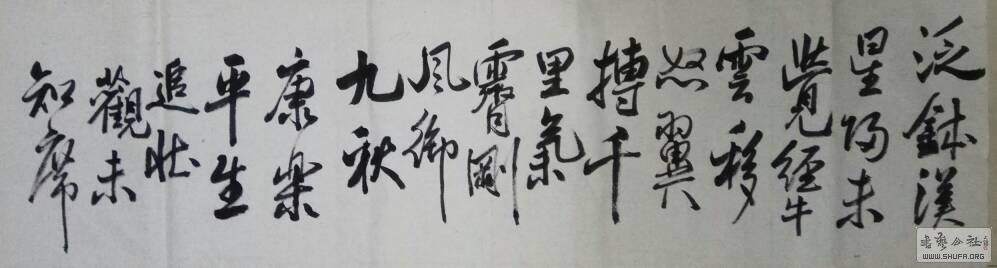 泛鉢漢
星歸未
覺經牛
雲移
怒翼
搏千
里氣
霄剛
風御
九秋
康樂
平生
追壯
觀未
知席
书艺公社
WWW.SHUFA.ORG